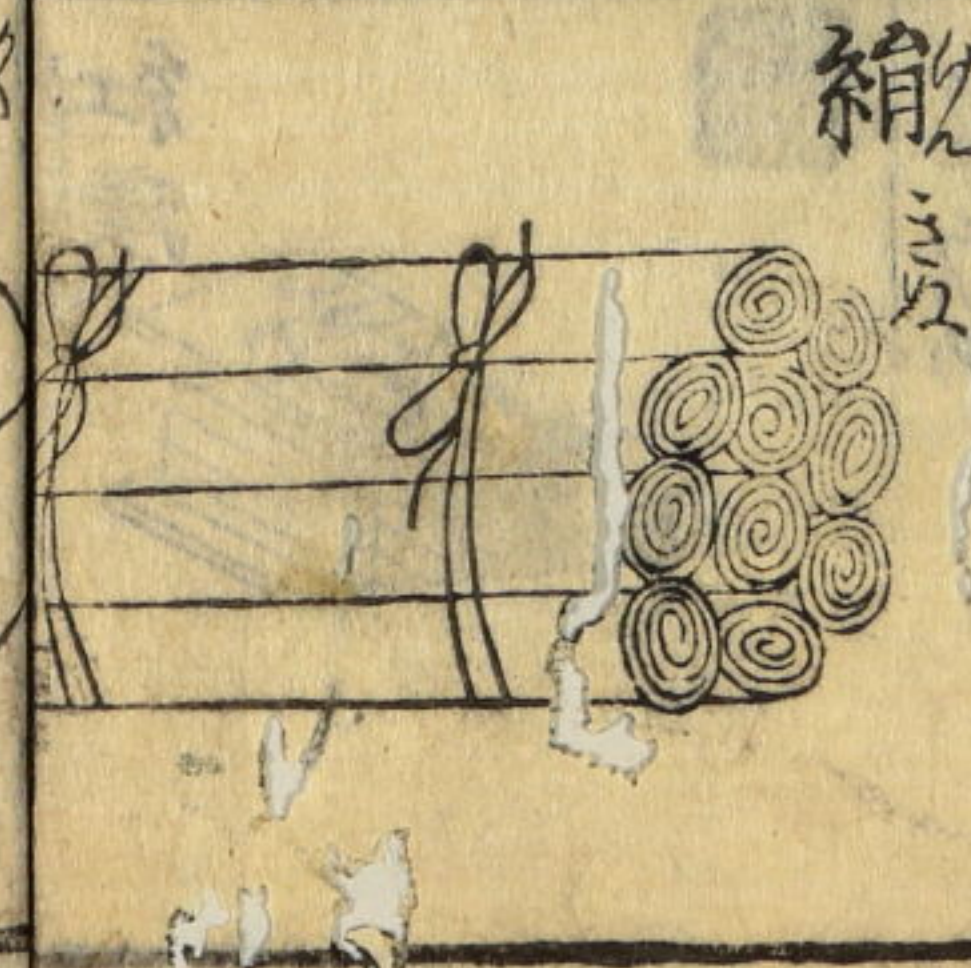 絹
けん
きぬ